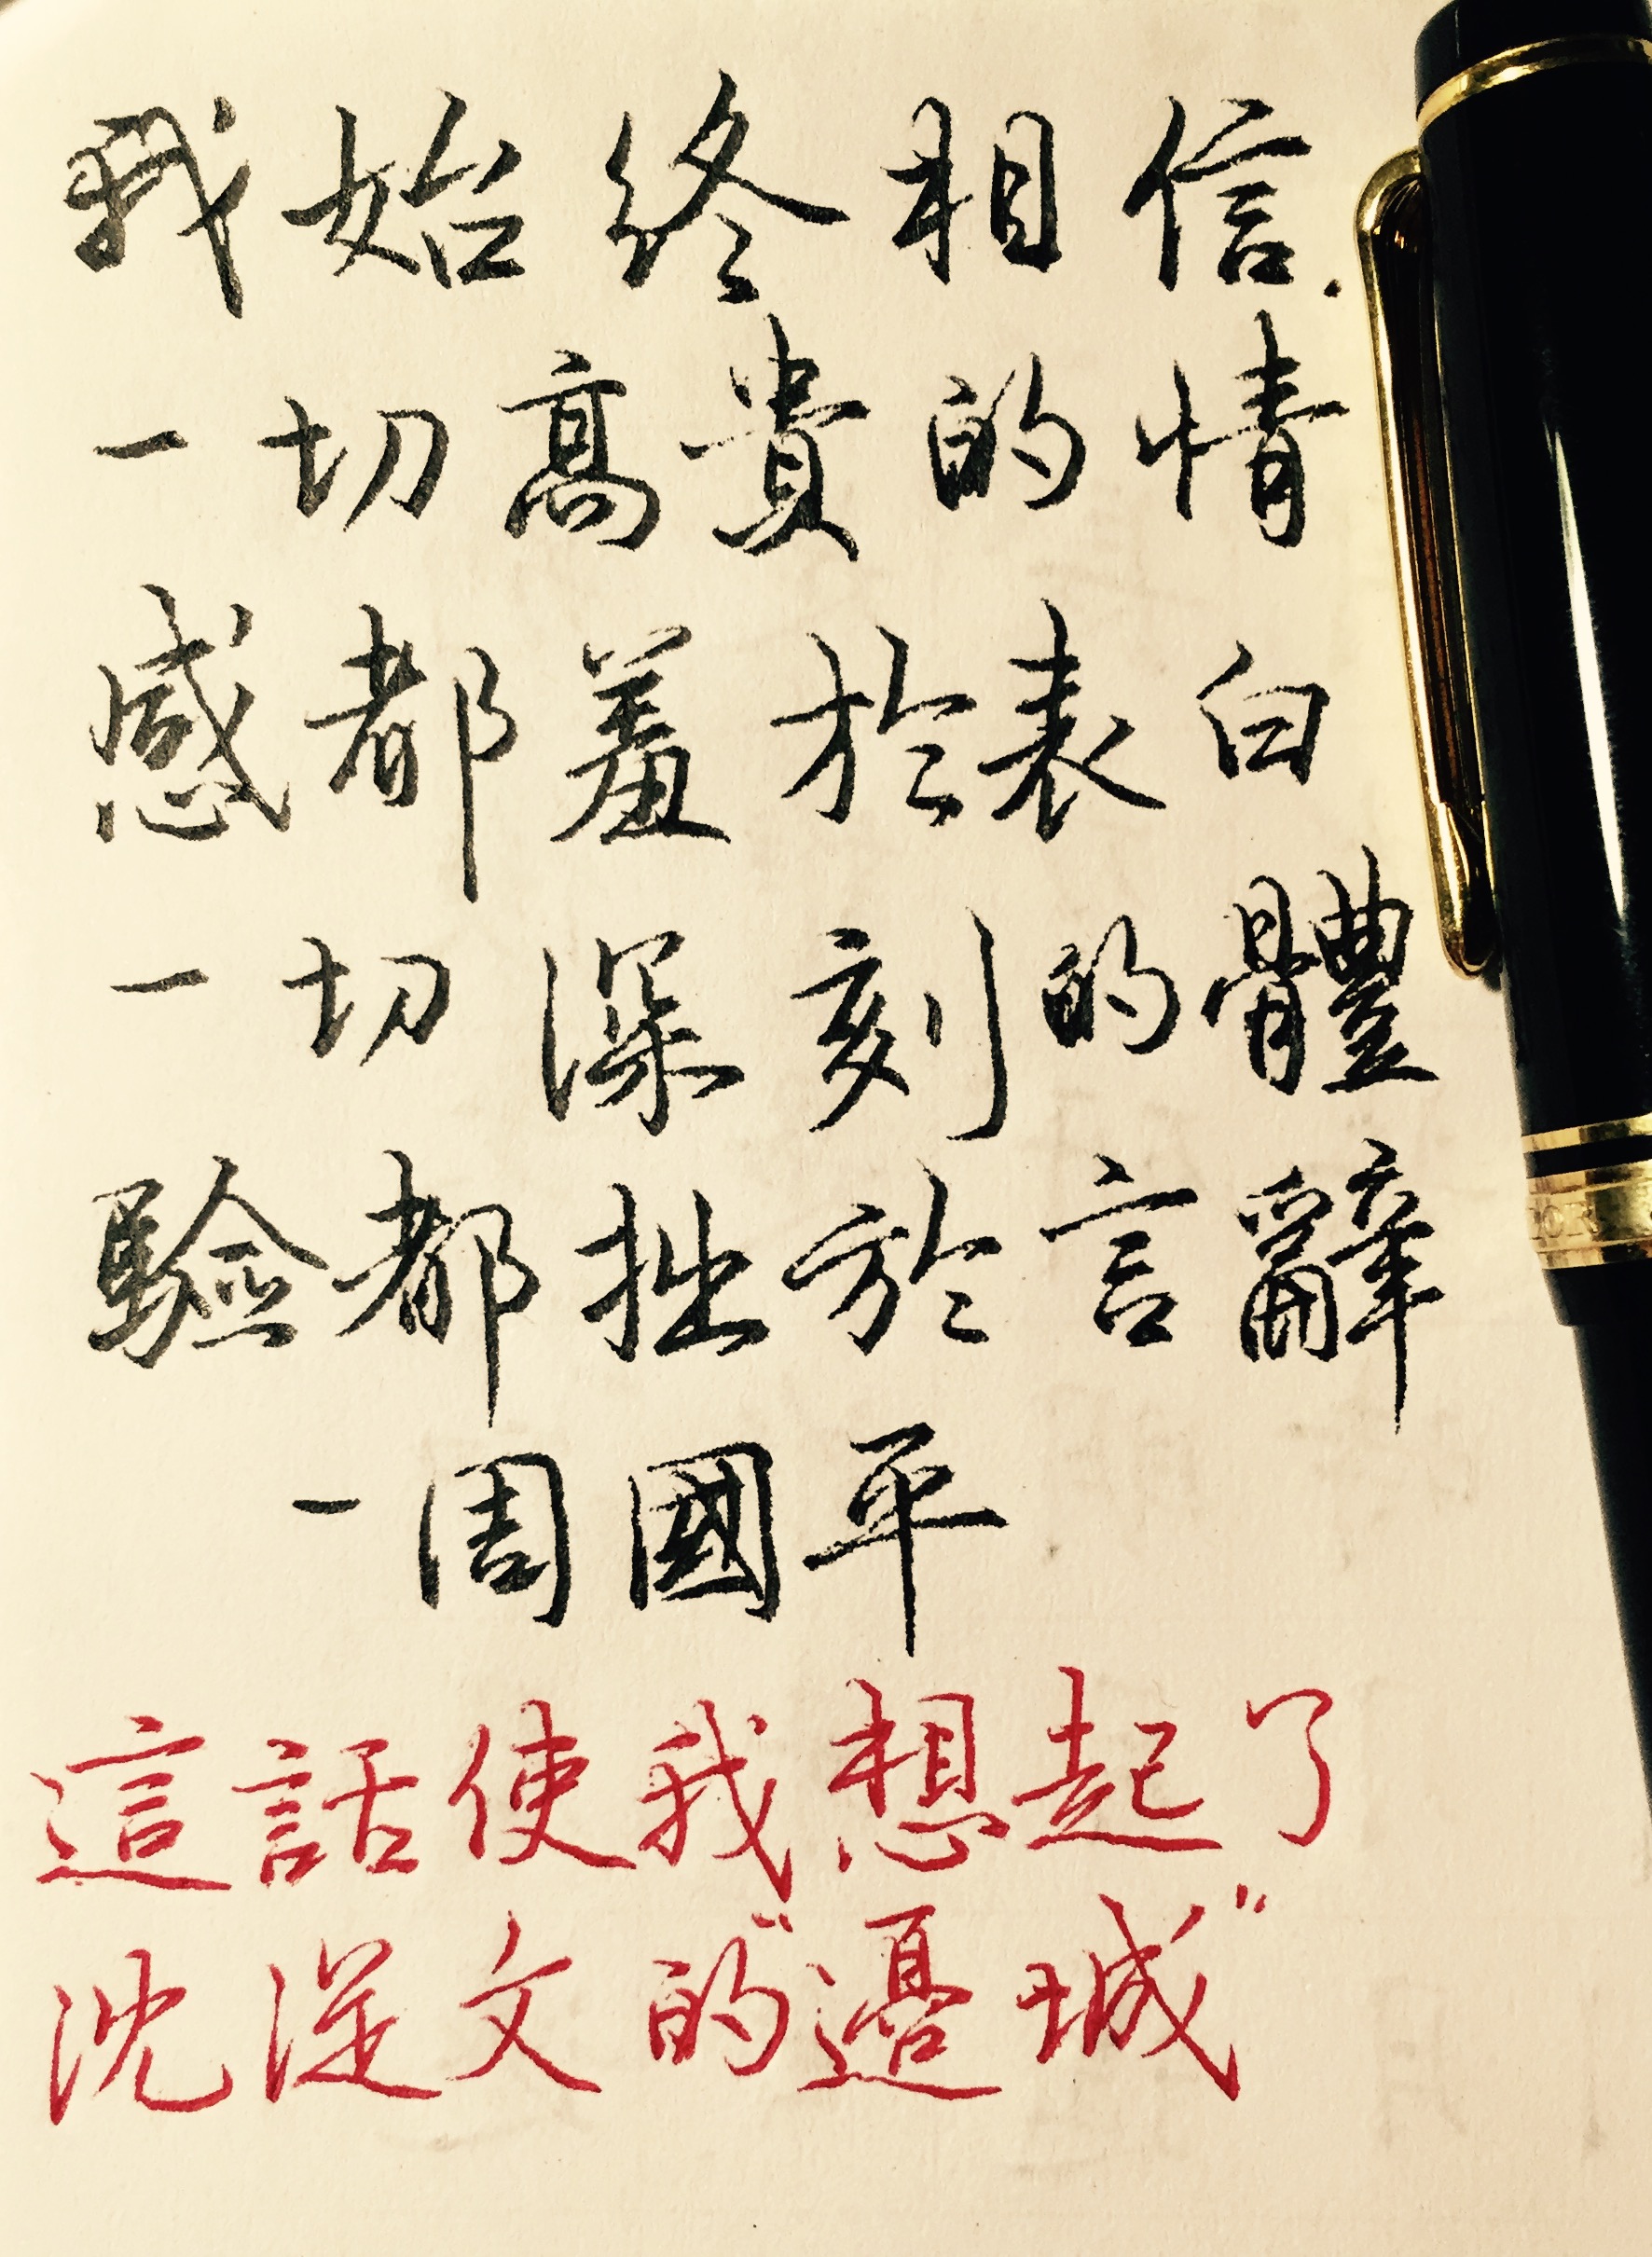 我始終相信.
一切高貴的情
感都羞於表白
一切深刻的體
驗都拙於言辭
—周國平
這話使我想起了
沈從文的"邊城"